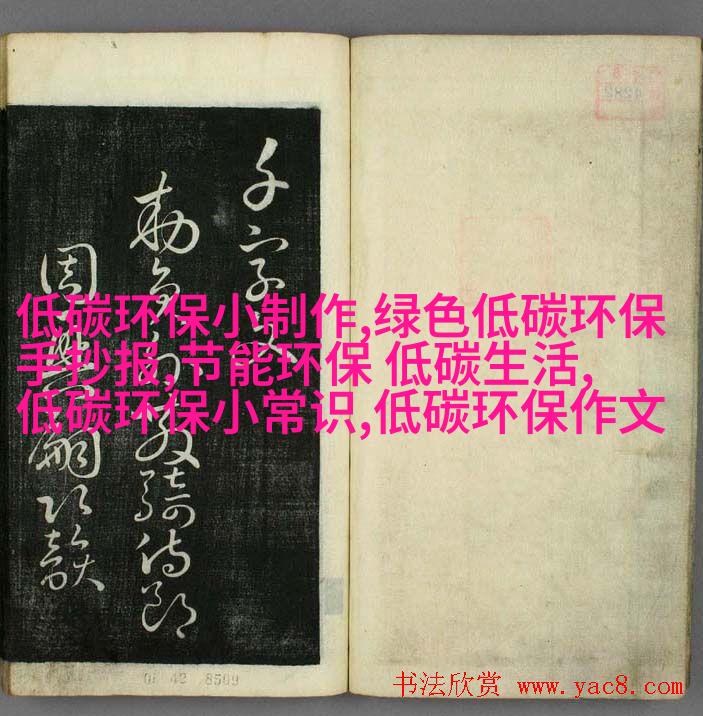 千字文
勅員外散騎侍郎
周興嗣次韻
低碳环保小制作,绿色低碳环保
手抄报,节能环保 低碳生活,
低碳环保小常识,低碳环保作文
42 8509
书法欣赏 www.yac8.com